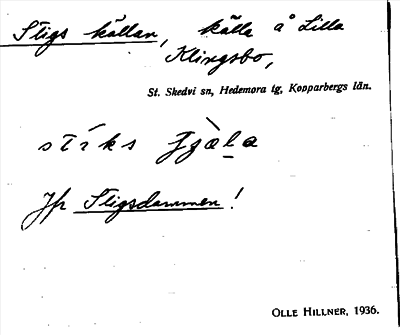 Stigs källan, källa å Lilla
Klingsbo,
St. Skedvi sn, Hedemora tg, Kopparbergs län.
stíks
Jfr Stigsdammen!
OLLE HILLNER, 1936.